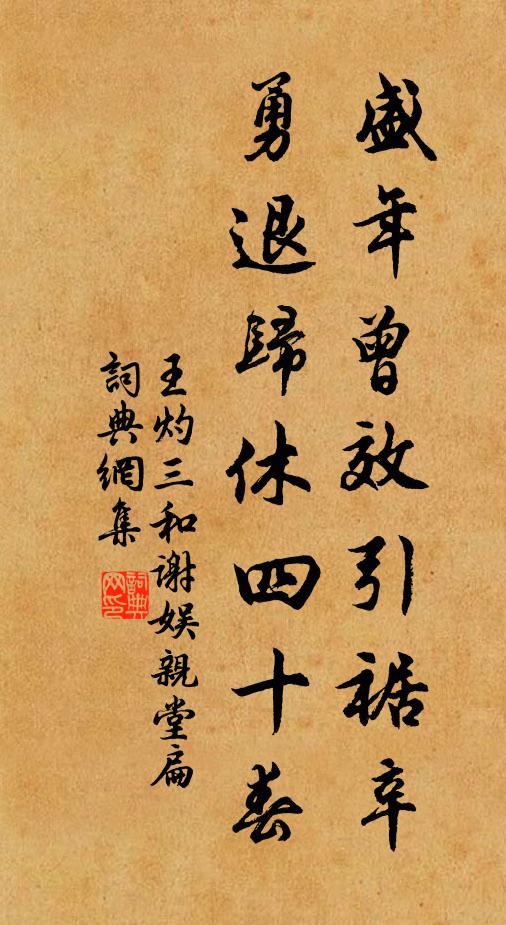 盛年曾效引裾辛
勇退歸休四十春
王灼三和謝娱親堂扁
詞典網集
詞典网印